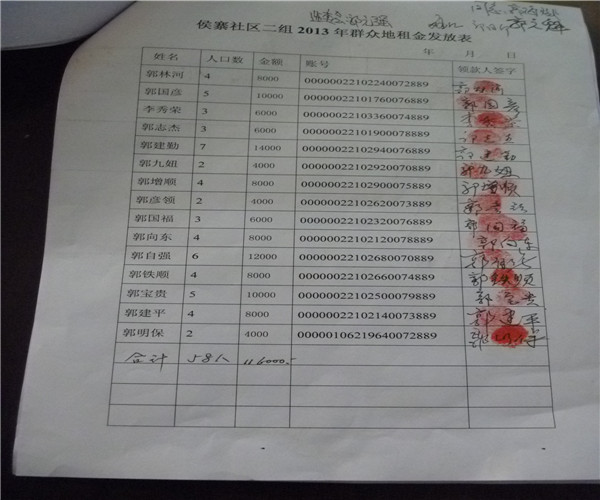 侯寨社区二组 2013 年群众地租金发放表
年 月 日
姓名 人口数 金额 账号 领款人签字
郭林河 4 8000 00000022102240072889
郭国彦 5 10000 00000022101760076889 郭国彦
李秀荣 3 6000 00000022103360074889
郭志杰 3 6000 00000022101900078889
郭建勤 7 14000 00000022102940076889 郭建勤
郭九妞 2 4000 00000022102920070889 郭九妞
郭增顺 4 8000 00000022102900075889 郭增顺
郭彦领 2 4000 00000022102620073889
郭国福 3 6000 00000022102320076889 郭国福
郭向东 4 8000 00000022102120078889 郭向东
郭自强 6 12000 00000022102680070889
郭铁顺 4 8000 00000022102660074889 郭铁顺
郭宝贵 5 10000 00000022102500079889 郭宝贵
郭建平 4 8000 00000022102140073889 郭建平
郭明保 2 4000 00000106219640072889
合计 58人 116000.-